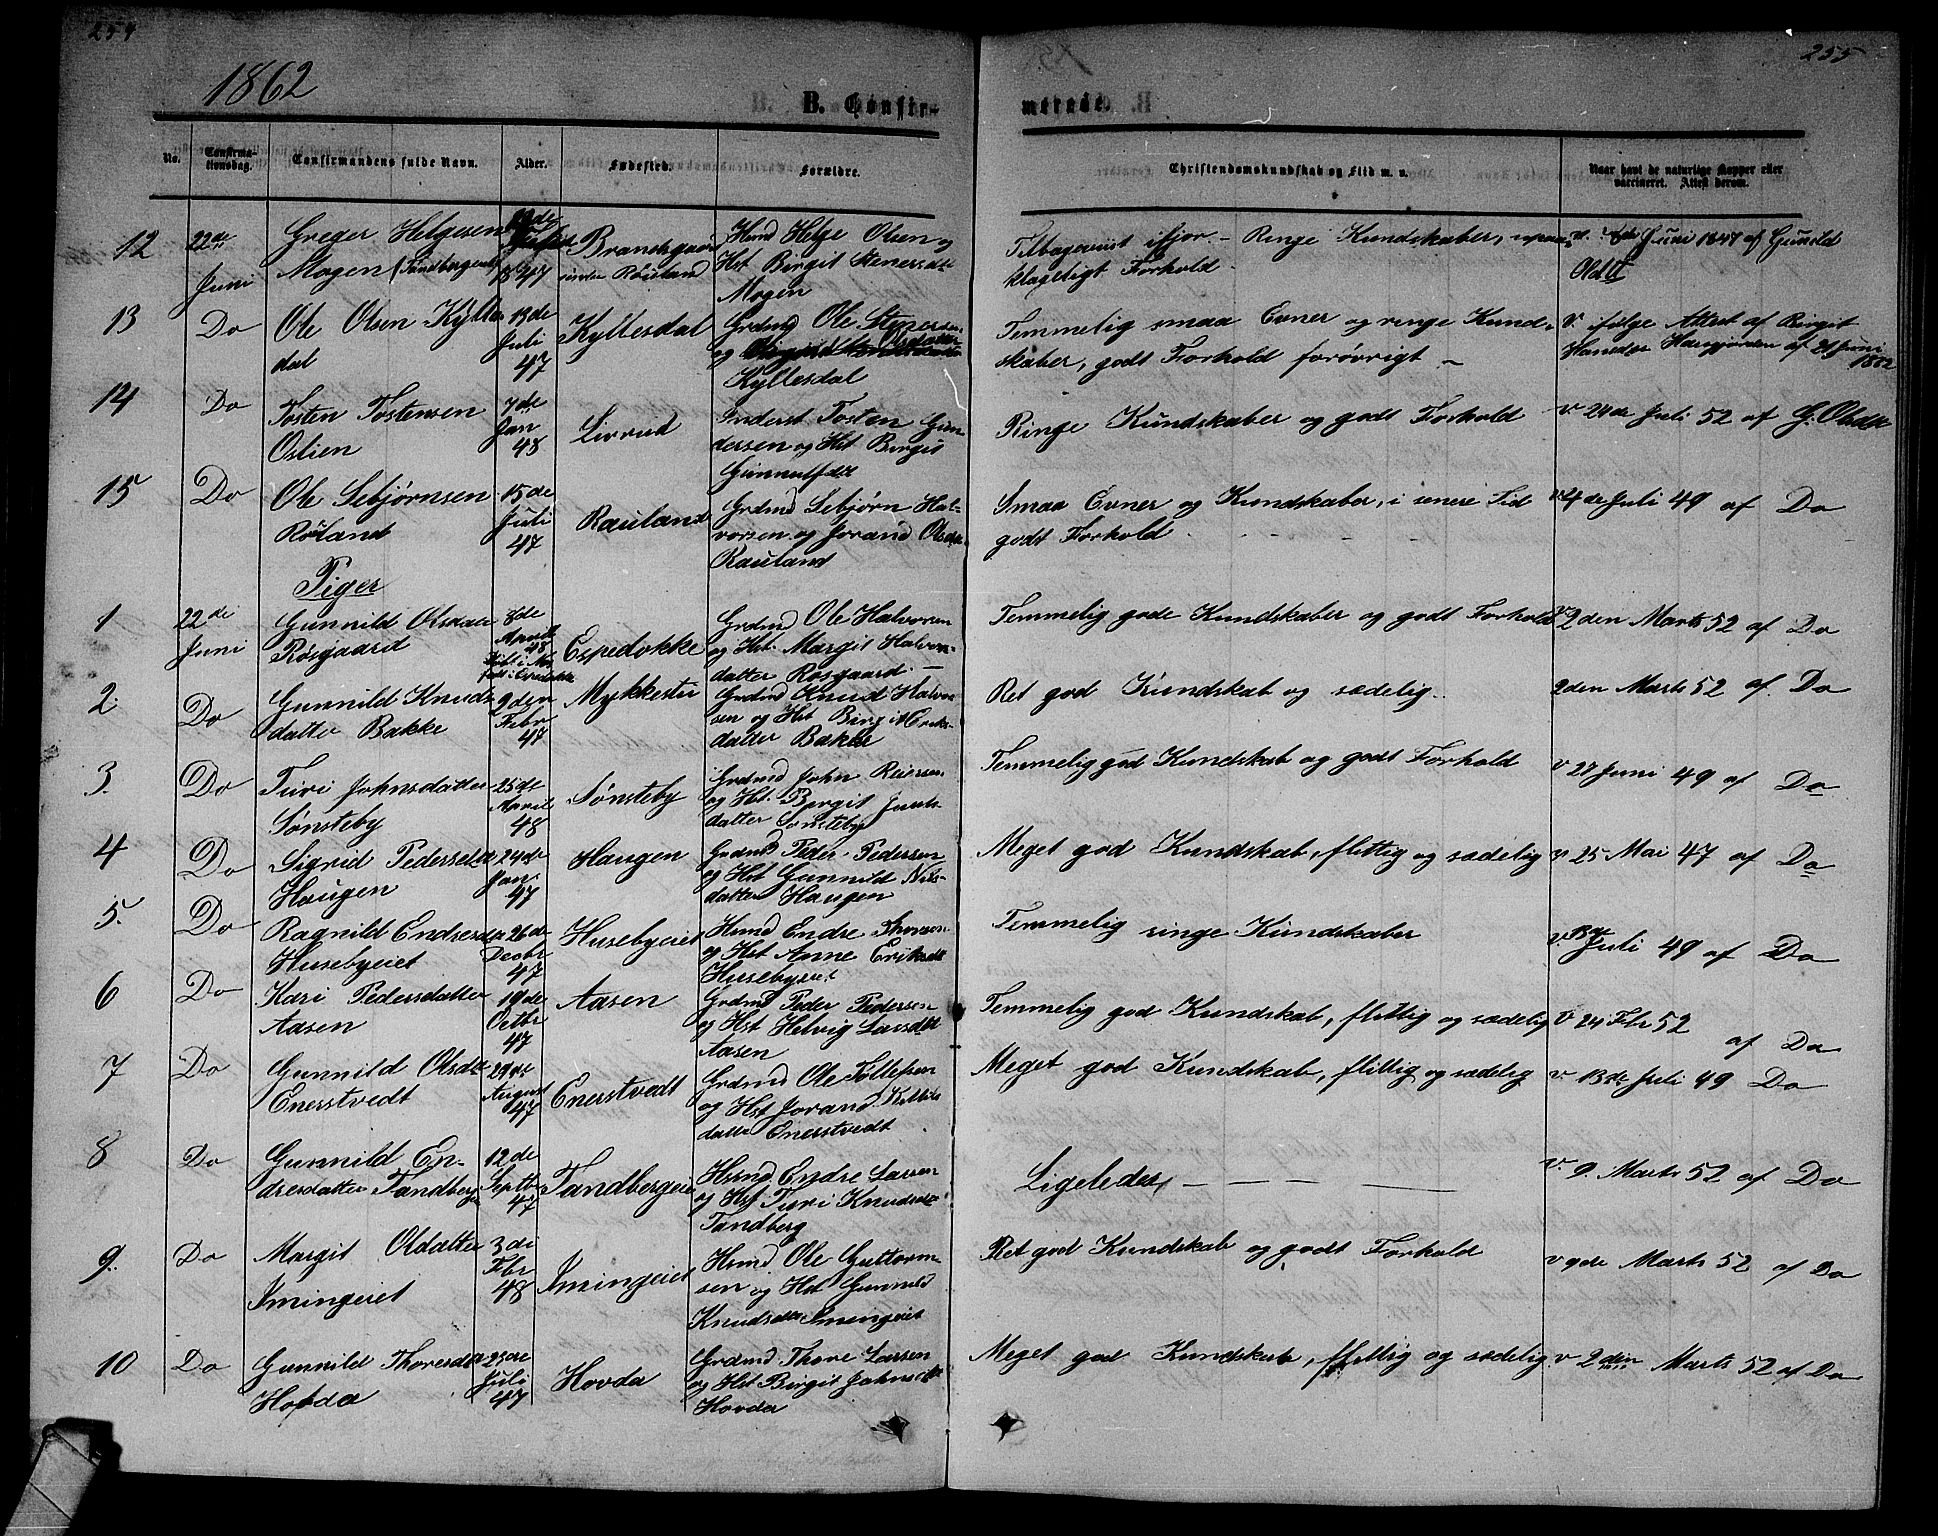 254
255
1862
B. Confir-
merede.
No.
Confirma-
tionsdag.
Confirmandens fulde Navn.
Alder.
Fødested.
Forældre.
Christendomskundskab og Flid m. v.
Naar havt de naturlige Kopper eller
vaccineret. Attest derom.
12
22de
Juni
Greger Helgesen
Mogen (Tandbergeiet)
1847
under Rauland
Hmd Helge Olsen og
Hst Birgit Stenersdtr
Mogen
Tilbageviist ifjor. - Ringe Kundskaber,
klageligt Forhold
Juni 1847 af Gunild
Olsdtr
13
Do
Ole Olsen Kylles
dal
13de
Juli
47
Kyllesdal
Grdmd Ole Stenersen
og
Kyllesdal
Temmelig smaa Evner og ringe Kund-
skaber, godt Forhold forøvrigt -
v. ifølge Attest af Birgit
af 21 Juni
1862
14
Do
Tosten Tostensen
Oslien
7de
Jan
48
Livrud
Inderst Tosten Gun
dersen og Hst Birgit
Gunnulfsdtr
Ringe Kundskaber og godt Forhold
v 24de Juli 52 af G. Olsdtr
15
Do
Ole Sebjørnsen
Røland
15de
Juli
47
Rauland
Grdmd Sebjørn Hal-
vorsen og Jorand Olsdtr
Rauland
Smaa Evner og Kundskaber, i senere Tid
godt Forhold
v 4de Juli 49 af Do
Piger
1
22de
Juni
Gunnild Olsdatter
Røsgaard
8de
April
48
Espedokke
Grdmd Ole Halvorsen
og Hst. Margit Halvors-
datter Røsgaard
Temmelig gode Kundskaber og godt Forhold
v 2den Marts 52 af Do
2.
Do
Gunnild Knuds
datter Bakke
9den
Febr
47
Mykkestu
Grdmd Knud Halvor
sen og Hst Birgit Eriks-
datter Bakke
Ret god Kundskab og sædelig.
2den Marts 52 af Do
3.
Do
Turi Johnsdatter
Sønsteby
25de
April
48
Sønsteby
Grdmd John Reiersen
og Hst. Birgit
datter Sønsteby
Temmelig god Kundskab og godt Forhold
v 27 Juni 49 af Do
4
Do
Sigrid Pedersdtr
Haugen
24de
Jan.
47
Haugen
Grdmd Peder Pedersen
og Hst Gunnild Nils-
datter Haugen
Meget god Kundskab, flittig og sædelig
v 25 Mai 47 af Do
5.
Do
Ragnild Endresdtr
Husebyeiet
26de
Decbr
47
Husebyeiet
Hmd Endre Thoresen
og Hst Anne Eriksdtr
Husebyeiet
Temmelig ringe Kundskaber
v. 13de Juli 49 af Do
6
Do
Kari Pedersdatter
Aasen
19de
Octbr
47
Aasen
Grdmd Peder Pedersen
og Hst Helvig Larsdtr
Aasen
Temmelig god Kundskab, flittig og sædelig
v 24 Febr 52
af Do
7
Do
Gunnild Olsdtr
Enerstvedt
29de
August
47
Enerstvedt
Grdmd Ole Tollefsen
og Hst Jorand Kittils
datter Enerstvedt
Meget god Kundskab, flittig og sædelig
v. 13de Juli 49 Do
8
Do
Gunnild En-
dresdatter Tandberg
12de
Septbr
47
Tandbergeiet
Hsmd Endre Larsen
og Hst Turi Knudsdtr
Tandberg
Ligeledes, - - - -
v. 9. Marts 52 af Do
9.
Do
Margit Olsdatter
Imingeiet
3di
Febr
48
Imingeiet
Hsmd Ole Guttorm-
sen og Hst Gunnild
Knudsdtr Imingeiet
Ret god Kundskab og godt Forhold
v 9de Marts 52 af Do
10
Do
Gunnild Thoresdtr
Hovda
23de
Juli
47
Hovda
Grdmd Thore Larsen
og Hst Birgit Johnsdtr
Hovda
Meget god Kundskab, flittig og sædelig
v 2den Marts 52 af Do